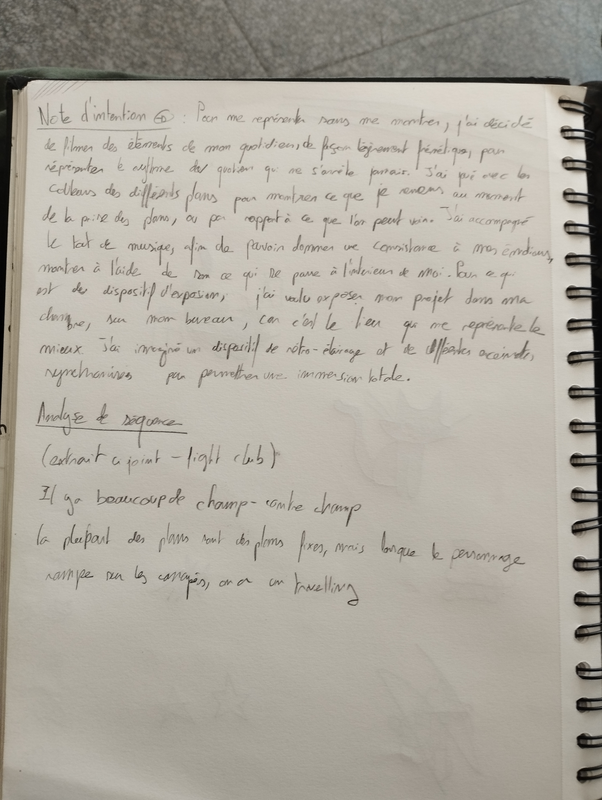 Note d'intention : Pour me représenter sans me montrer, j'ai décidé
de filmer des éléments de mon quotidien, de façon légèrement frénétique, pour
représenter le rythme du quotien qui ne s'arrête jamais. J'ai joué avec les
couleurs des différents plans pour montrer ce que je ressens au moment
de la prise des plans, ou par rapport à ce que l'on peut voir. J'ai accompagné
le tout de musique, afin de pouvoir donner une consistance à mes émotions,
montrer à l'aide de son ce qui se passe à l'intérieur de moi. Pour ce qui
est du dispositif d'exposition, j'ai voulu exposer mon projet dans ma
chambre, sur mon bureau, car c'est le lieu qui me représente le
mieux. J'ai imaginé un dispositif de rétro-éclairage et de différentes enceintes
synchronisées pour permettre une immersion totale.
Analyse de séquence
(extrait ci joint - fight club)
Il y a beaucoup de champ-contre champ
la plupart des plans sont des plans fixes, mais lorsque le personnage
rampe sur les canapés, on a un travelling